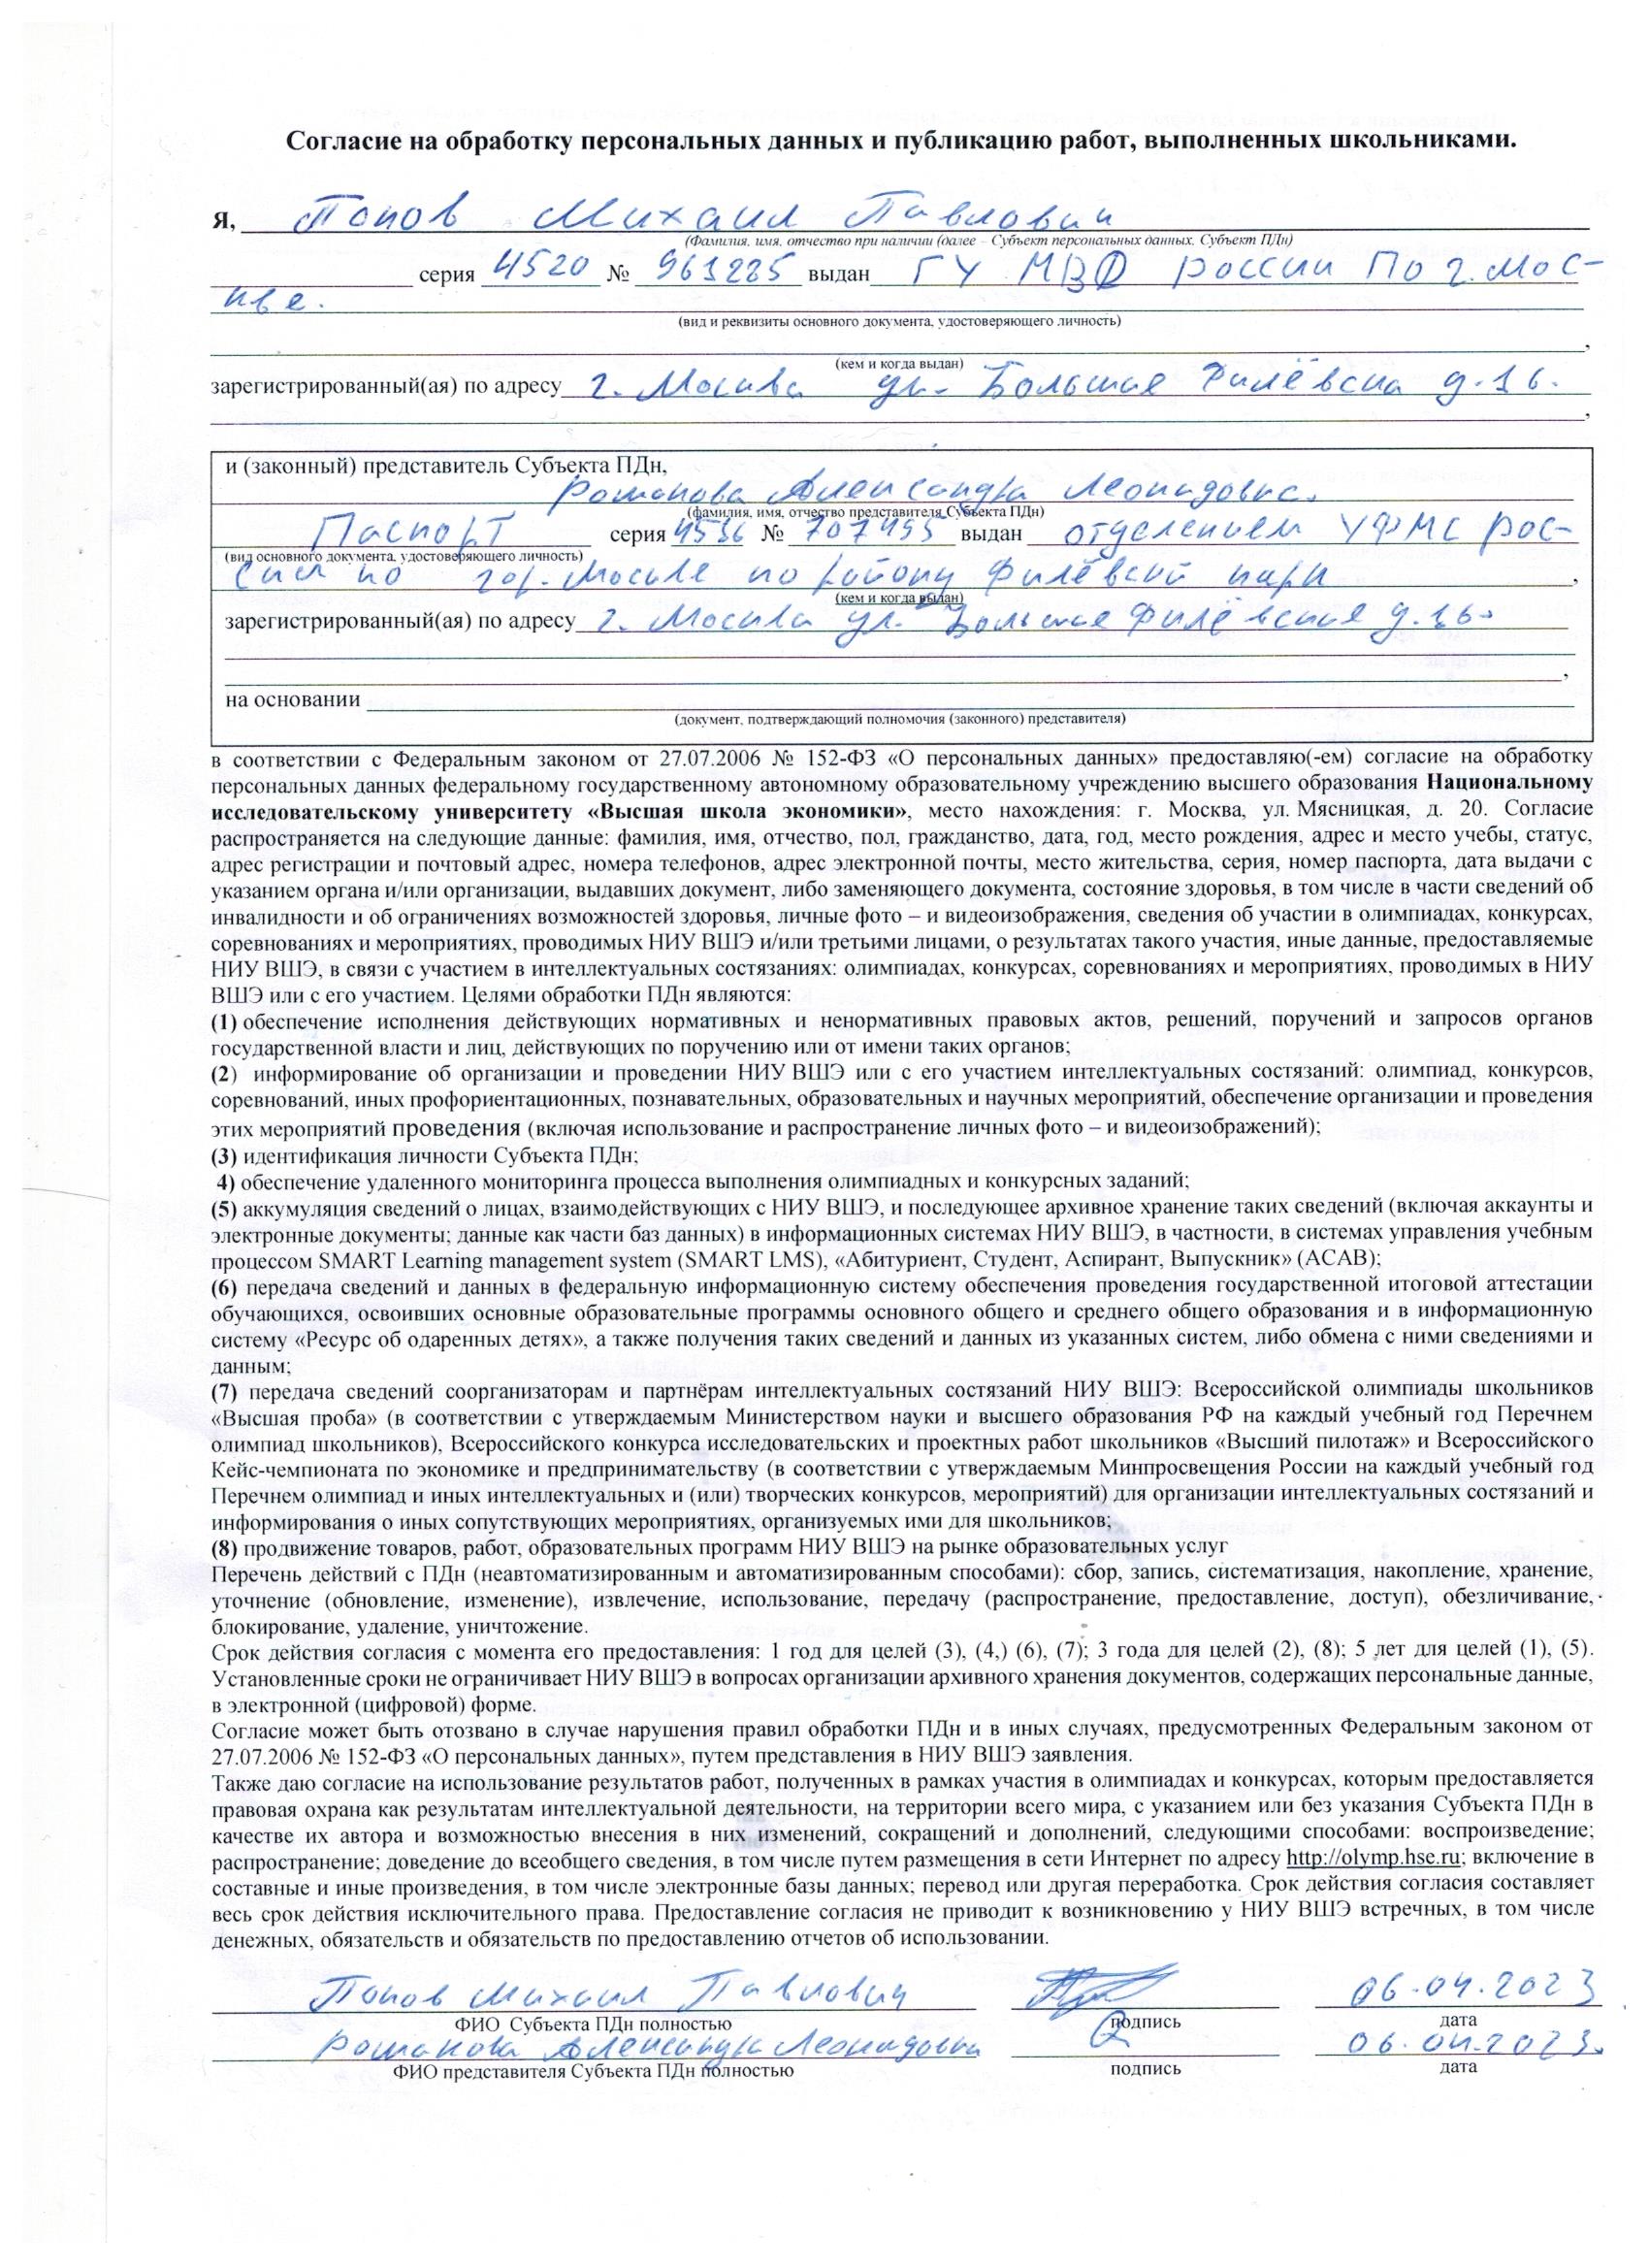 Согласие на обработку персональных данных и публикацию работ, выполненных школьниками.
Я, Попов Михаил Павлович
(Фамилия, имя, отчество при наличии (далее – Субъект персональных данных, Субъект ПДн)
серия 4520 № 961225 выдан ГУ МВД России по г. Мос-
кве.
(вид и реквизиты основного документа, удостоверяющего личность)
,
(кем и когда выдан)
зарегистрированный(ая) по адресу г. Москва ул. Большая Филёвска д. 16.
,
и (законный) представитель Субъекта ПДн,
Романова Александра Леонидовна.
(фамилия, имя, отчество представителя Субъекта ПДн)
Паспорт серия 4536 № 707495 выдан отделением УФМС Рос-
(вид основного документа, удостоверяющего личность)
сии по гор. Москве по району Филёвский парк ,
(кем и когда выдан)
зарегистрированный(ая) по адресу г. Москва ул. Большая Филёвская д. 16.
,
на основании
(документ, подтверждающий полномочия (законного) представителя)
в соответствии с Федеральным законом от 27.07.2006 № 152-ФЗ «О персональных данных» предоставляю(-ем) согласие на обработку
персональных данных федеральному государственному автономному образовательному учреждению высшего образования Национальному
исследовательскому университету «Высшая школа экономики», место нахождения: г. Москва, ул. Мясницкая, д. 20. Согласие
распространяется на следующие данные: фамилия, имя, отчество, пол, гражданство, дата, год, место рождения, адрес и место учебы, статус,
адрес регистрации и почтовый адрес, номера телефонов, адрес электронной почты, место жительства, серия, номер паспорта, дата выдачи с
указанием органа и/или организации, выдавших документ, либо заменяющего документа, состояние здоровья, в том числе в части сведений об
инвалидности и об ограничениях возможностей здоровья, личные фото – и видеоизображения, сведения об участии в олимпиадах, конкурсах,
соревнованиях и мероприятиях, проводимых НИУ ВШЭ и/или третьими лицами, о результатах такого участия, иные данные, предоставляемые
НИУ ВШЭ, в связи с участием в интеллектуальных состязаниях: олимпиадах, конкурсах, соревнованиях и мероприятиях, проводимых в НИУ
ВШЭ или с его участием. Целями обработки ПДн являются:
(1) обеспечение исполнения действующих нормативных и ненормативных правовых актов, решений, поручений и запросов органов
государственной власти и лиц, действующих по поручению или от имени таких органов;
(2) информирование об организации и проведении НИУ ВШЭ или с его участием интеллектуальных состязаний: олимпиад, конкурсов,
соревнований, иных профориентационных, познавательных, образовательных и научных мероприятий, обеспечение организации и проведения
этих мероприятий проведения (включая использование и распространение личных фото – и видеоизображений);
(3) идентификация личности Субъекта ПДн;
4) обеспечение удаленного мониторинга процесса выполнения олимпиадных и конкурсных заданий;
(5) аккумуляция сведений о лицах, взаимодействующих с НИУ ВШЭ, и последующее архивное хранение таких сведений (включая аккаунты и
электронные документы; данные как части баз данных) в информационных системах НИУ ВШЭ, в частности, в системах управления учебным
процессом SMART Learning management system (SMART LMS), «Абитуриент, Студент, Аспирант, Выпускник» (АСАВ);
(6) передача сведений и данных в федеральную информационную систему обеспечения проведения государственной итоговой аттестации
обучающихся, освоивших основные образовательные программы основного общего и среднего общего образования и в информационную
систему «Ресурс об одаренных детях», а также получения таких сведений и данных из указанных систем, либо обмена с ними сведениями и
данным;
(7) передача сведений соорганизаторам и партнёрам интеллектуальных состязаний НИУ ВШЭ: Всероссийской олимпиады школьников
«Высшая проба» (в соответствии с утверждаемым Министерством науки и высшего образования РФ на каждый учебный год Перечнем
олимпиад школьников), Всероссийского конкурса исследовательских и проектных работ школьников «Высший пилотаж» и Всероссийского
Кейс-чемпионата по экономике и предпринимательству (в соответствии с утверждаемым Минпросвещения России на каждый учебный год
Перечнем олимпиад и иных интеллектуальных и (или) творческих конкурсов, мероприятий) для организации интеллектуальных состязаний и
информирования о иных сопутствующих мероприятиях, организуемых ими для школьников;
(8) продвижение товаров, работ, образовательных программ НИУ ВШЭ на рынке образовательных услуг
Перечень действий с ПДн (неавтоматизированным и автоматизированным способами): сбор, запись, систематизация, накопление, хранение,
уточнение (обновление, изменение), извлечение, использование, передачу (распространение, предоставление, доступ), обезличивание,
блокирование, удаление, уничтожение.
Срок действия согласия с момента его предоставления: 1 год для целей (3), (4,) (6), (7); 3 года для целей (2), (8); 5 лет для целей (1), (5).
Установленные сроки не ограничивает НИУ ВШЭ в вопросах организации архивного хранения документов, содержащих персональные данные,
в электронной (цифровой) форме.
Согласие может быть отозвано в случае нарушения правил обработки ПДн и в иных случаях, предусмотренных Федеральным законом от
27.07.2006 № 152-ФЗ «О персональных данных», путем представления в НИУ ВШЭ заявления.
Также даю согласие на использование результатов работ, полученных в рамках участия в олимпиадах и конкурсах, которым предоставляется
правовая охрана как результатам интеллектуальной деятельности, на территории всего мира, с указанием или без указания Субъекта ПДн в
качестве их автора и возможностью внесения в них изменений, сокращений и дополнений, следующими способами: воспроизведение;
распространение; доведение до всеобщего сведения, в том числе путем размещения в сети Интернет по адресу http://olymp.hse.ru; включение в
составные и иные произведения, в том числе электронные базы данных; перевод или другая переработка. Срок действия согласия составляет
весь срок действия исключительного права. Предоставление согласия не приводит к возникновению у НИУ ВШЭ встречных, в том числе
денежных, обязательств и обязательств по предоставлению отчетов об использовании.
Попов Михаил Павлович 06.04.2023
ФИО Субъекта ПДн полностью подпись дата
Романова Александра Леонидовна 06.04.2023.
ФИО представителя Субъекта ПДн полностью подпись дата